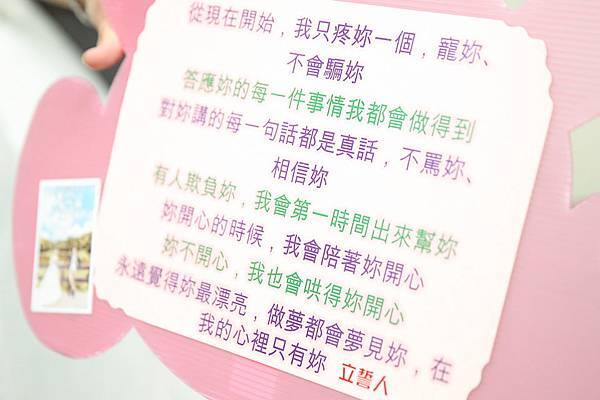 從現在開始，我只疼妳一個，寵妳、
不會騙妳
答應妳的每一件事情我都會做得到
對妳講的每一句話都是真話，不罵妳、
相信妳
有人欺負妳，我會第一時間出來幫妳
妳開心的時候，我會陪著妳開心
妳不開心，我也會哄得妳開心
永遠覺得妳最漂亮，做夢都會夢見妳，在
我的心裡只有妳 立誓人